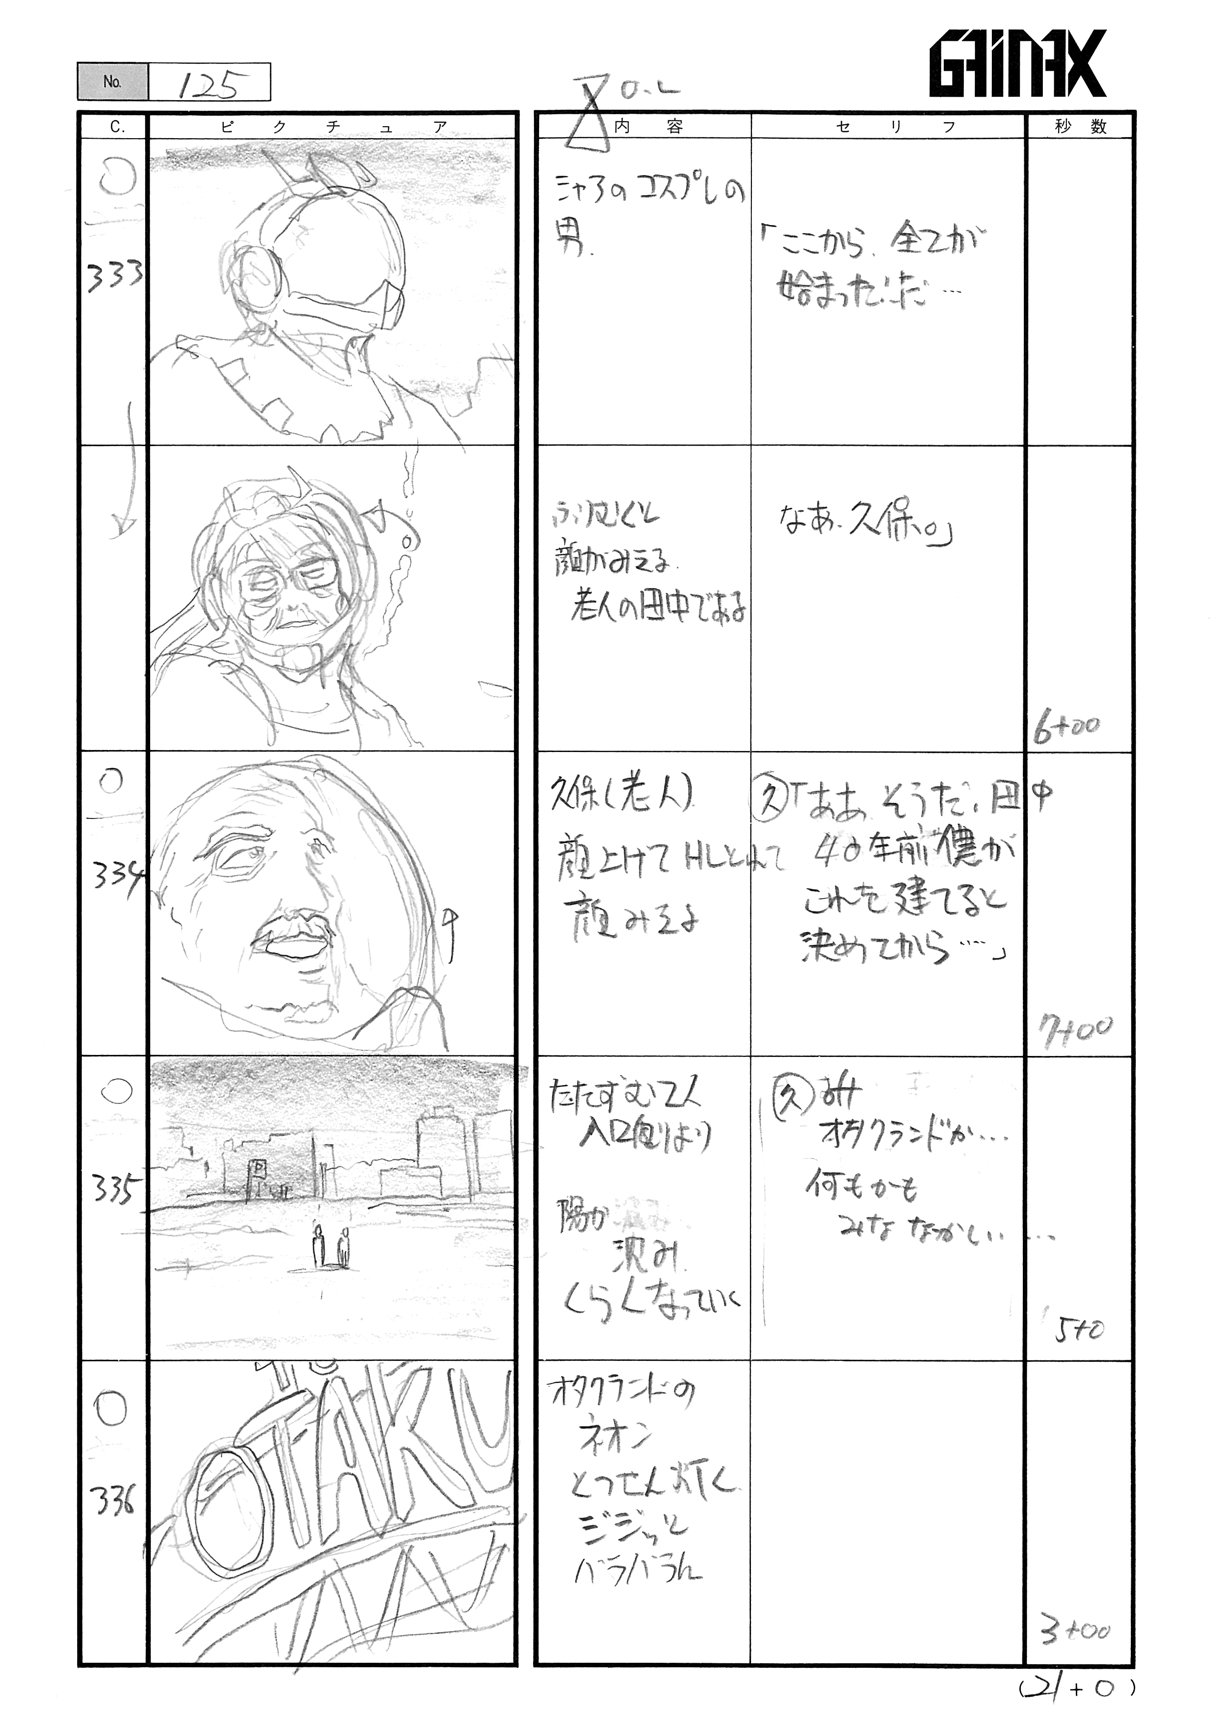 GAINAX
No. 125
O.L
C. ピクチュア 内容 セリフ 秒数
333
シャアのコスプレの
男.
「ここから、全てが
始まったんだ…
ふりむくと
顔がみえる.
老人の田中である
なあ、久保。」
6+00
334
久保(老人)
顔上げて HLとれて
顔みえる
久「ああ そうだ、田中
40年前 僕が
これを建てると
決めてから……」
7+00
335
たたずむ2人
入口側より
陽が
沈み
くらくなっていく
久
オタクランドか…
何もかも
みな なつかしい……
5+0
336
OTAKU
オタクランドの
ネオン
とつぜん灯く
ジジッと
バラバラに
3+00
(21+0)